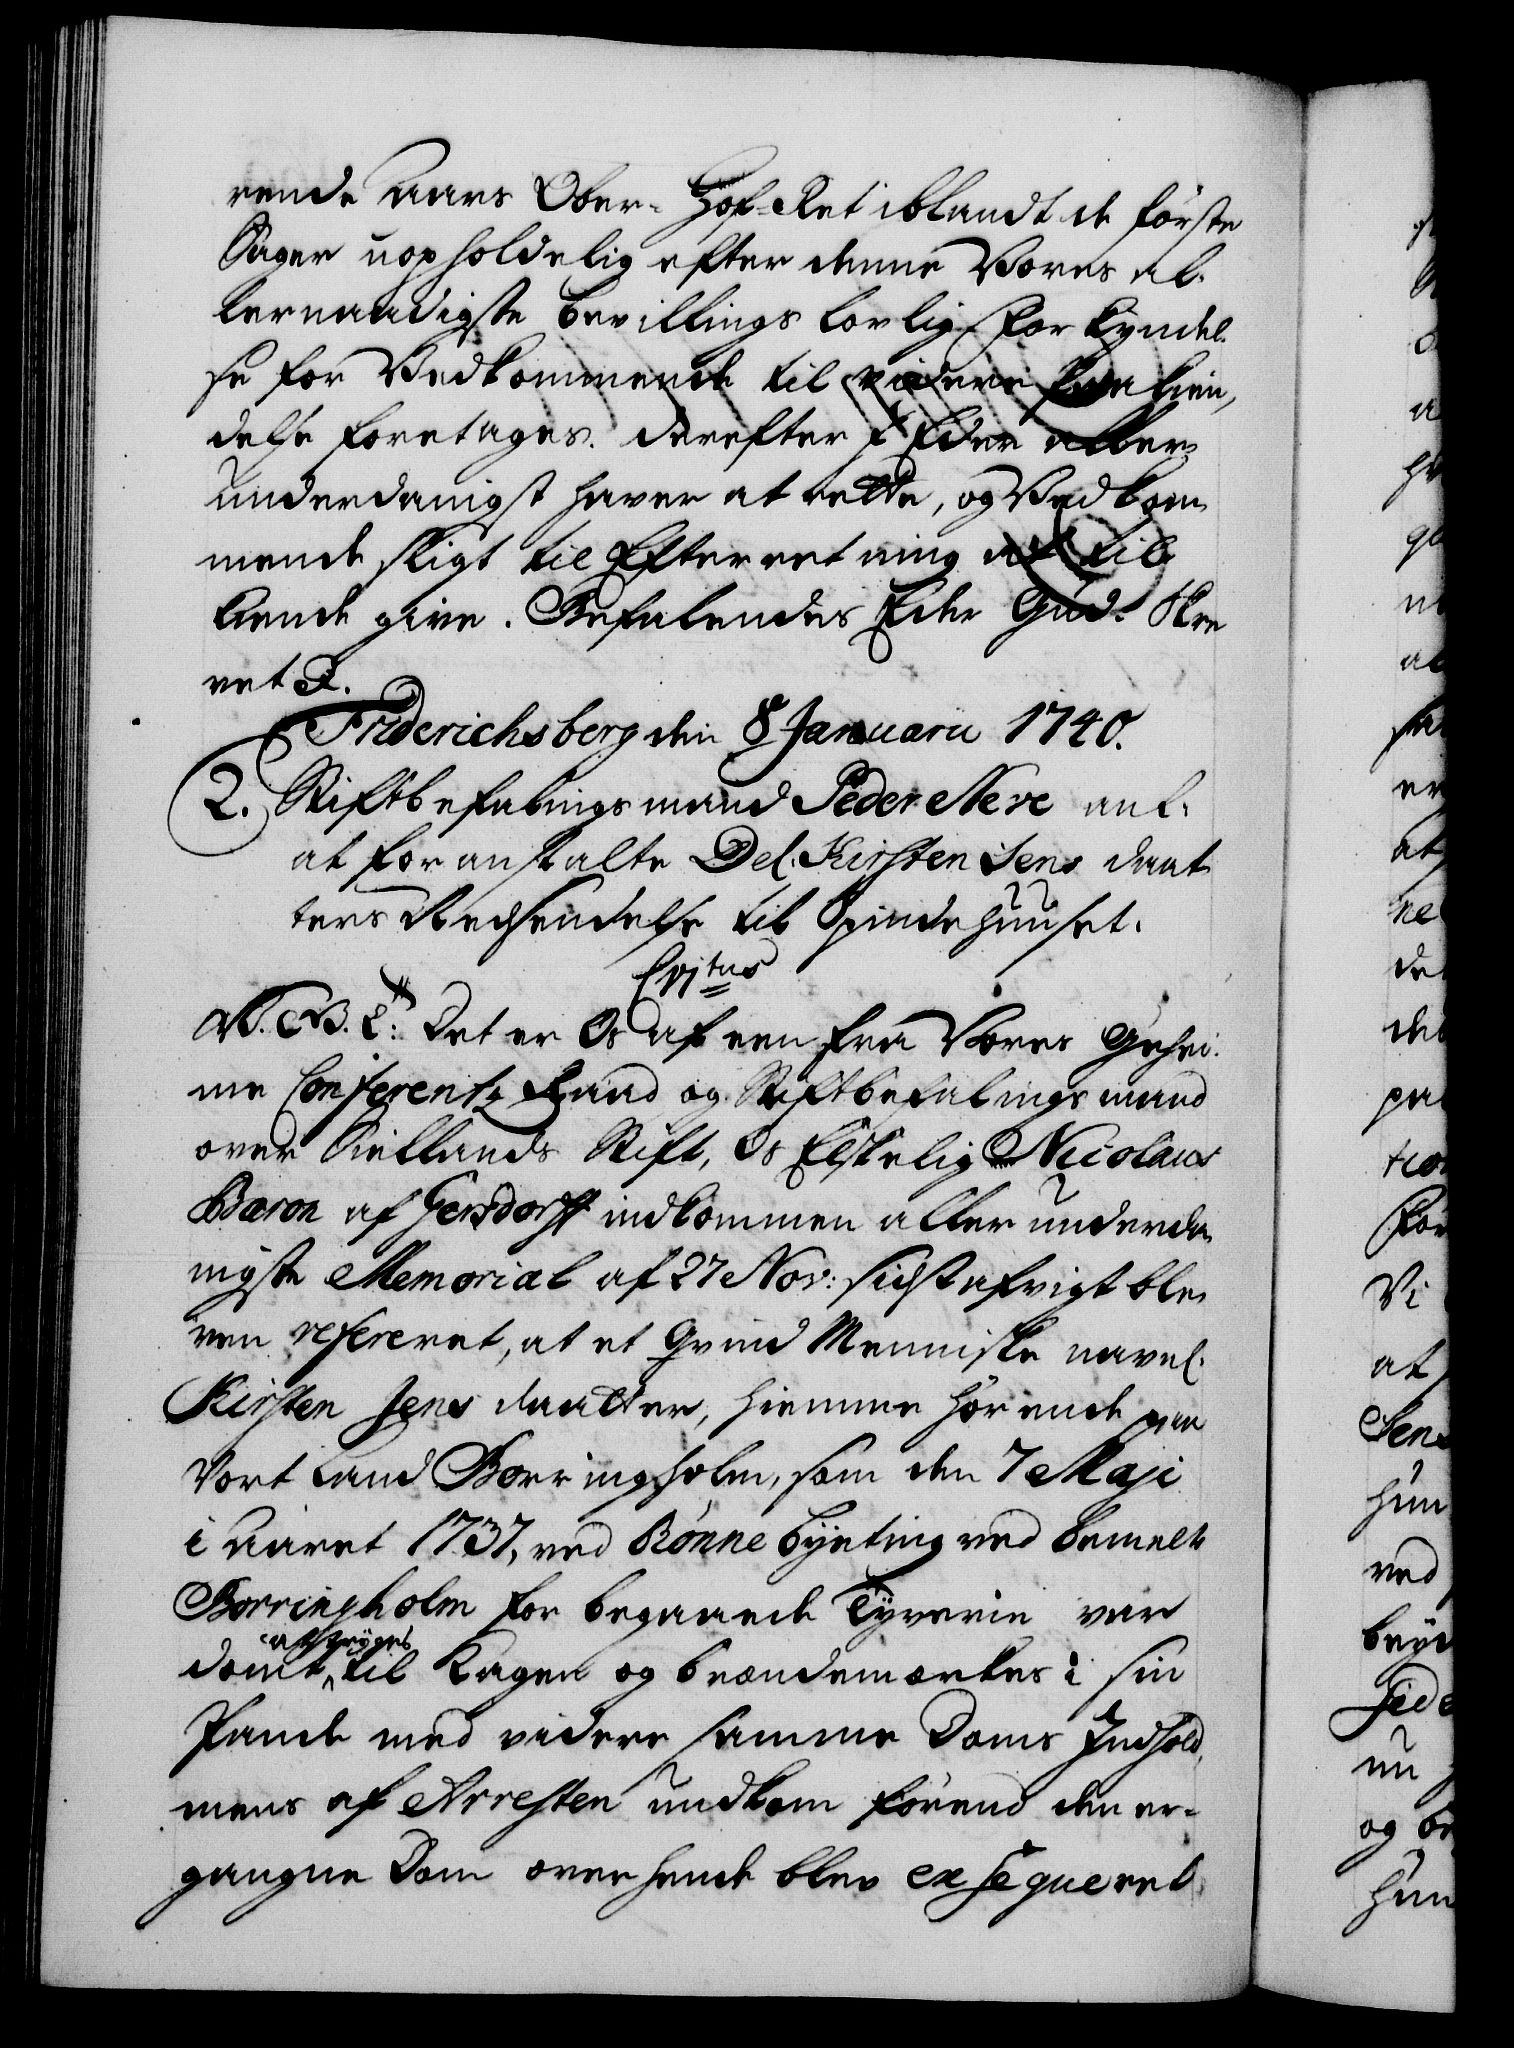 rende Aars Ober-Hof-Ret iblandt de første
Sager uopholdelig efter denne Vores al-
lernaadigste Bevillings lovlig Forkyndel-
se for Vedkommende til videre Paakien-
delse foretages. Derefter I Eder aller-
underdanigst haver at rette, og Vedkom-
mende sligt til Efterretning at til-
kiende give. Befalendes Eder Gud. Skre
vet
Friderichsberg den 8 Januarii 1740.
2. Stiftbefalingsmand Peder Neve anl.
at foranstalte Del. Kirsten Jens daat
ters Nedsendelse til Spindehuuset.
C VItus
V. G. T. Det er Os af een fra Vores Gehei-
me Conferentz Raad og Stiftbefalingsmand
over Siellands Stift, Os Elskelig Nicolaus
Baron af Gersdorff indkommen allerunderda-
nigste Memorial af 27 Nov: sidstafvigt ble-
ven refereret, at et Qvind Menniske navnl.
Kirsten Jens daatter, hiemme hørende paa
Vort Land Borringholm, som den 7 Maji
i Aaret 1737, ved Rønne Byeting ved bemelte
Borringholm for begaaende Tyverie var
dømt at stryges til Kagen og brændemærkes i sin
Pande med videre samme Doms Indhold,
mens af Arresten undkom førend den er-
gangne Dom over hende blev exseqveret,